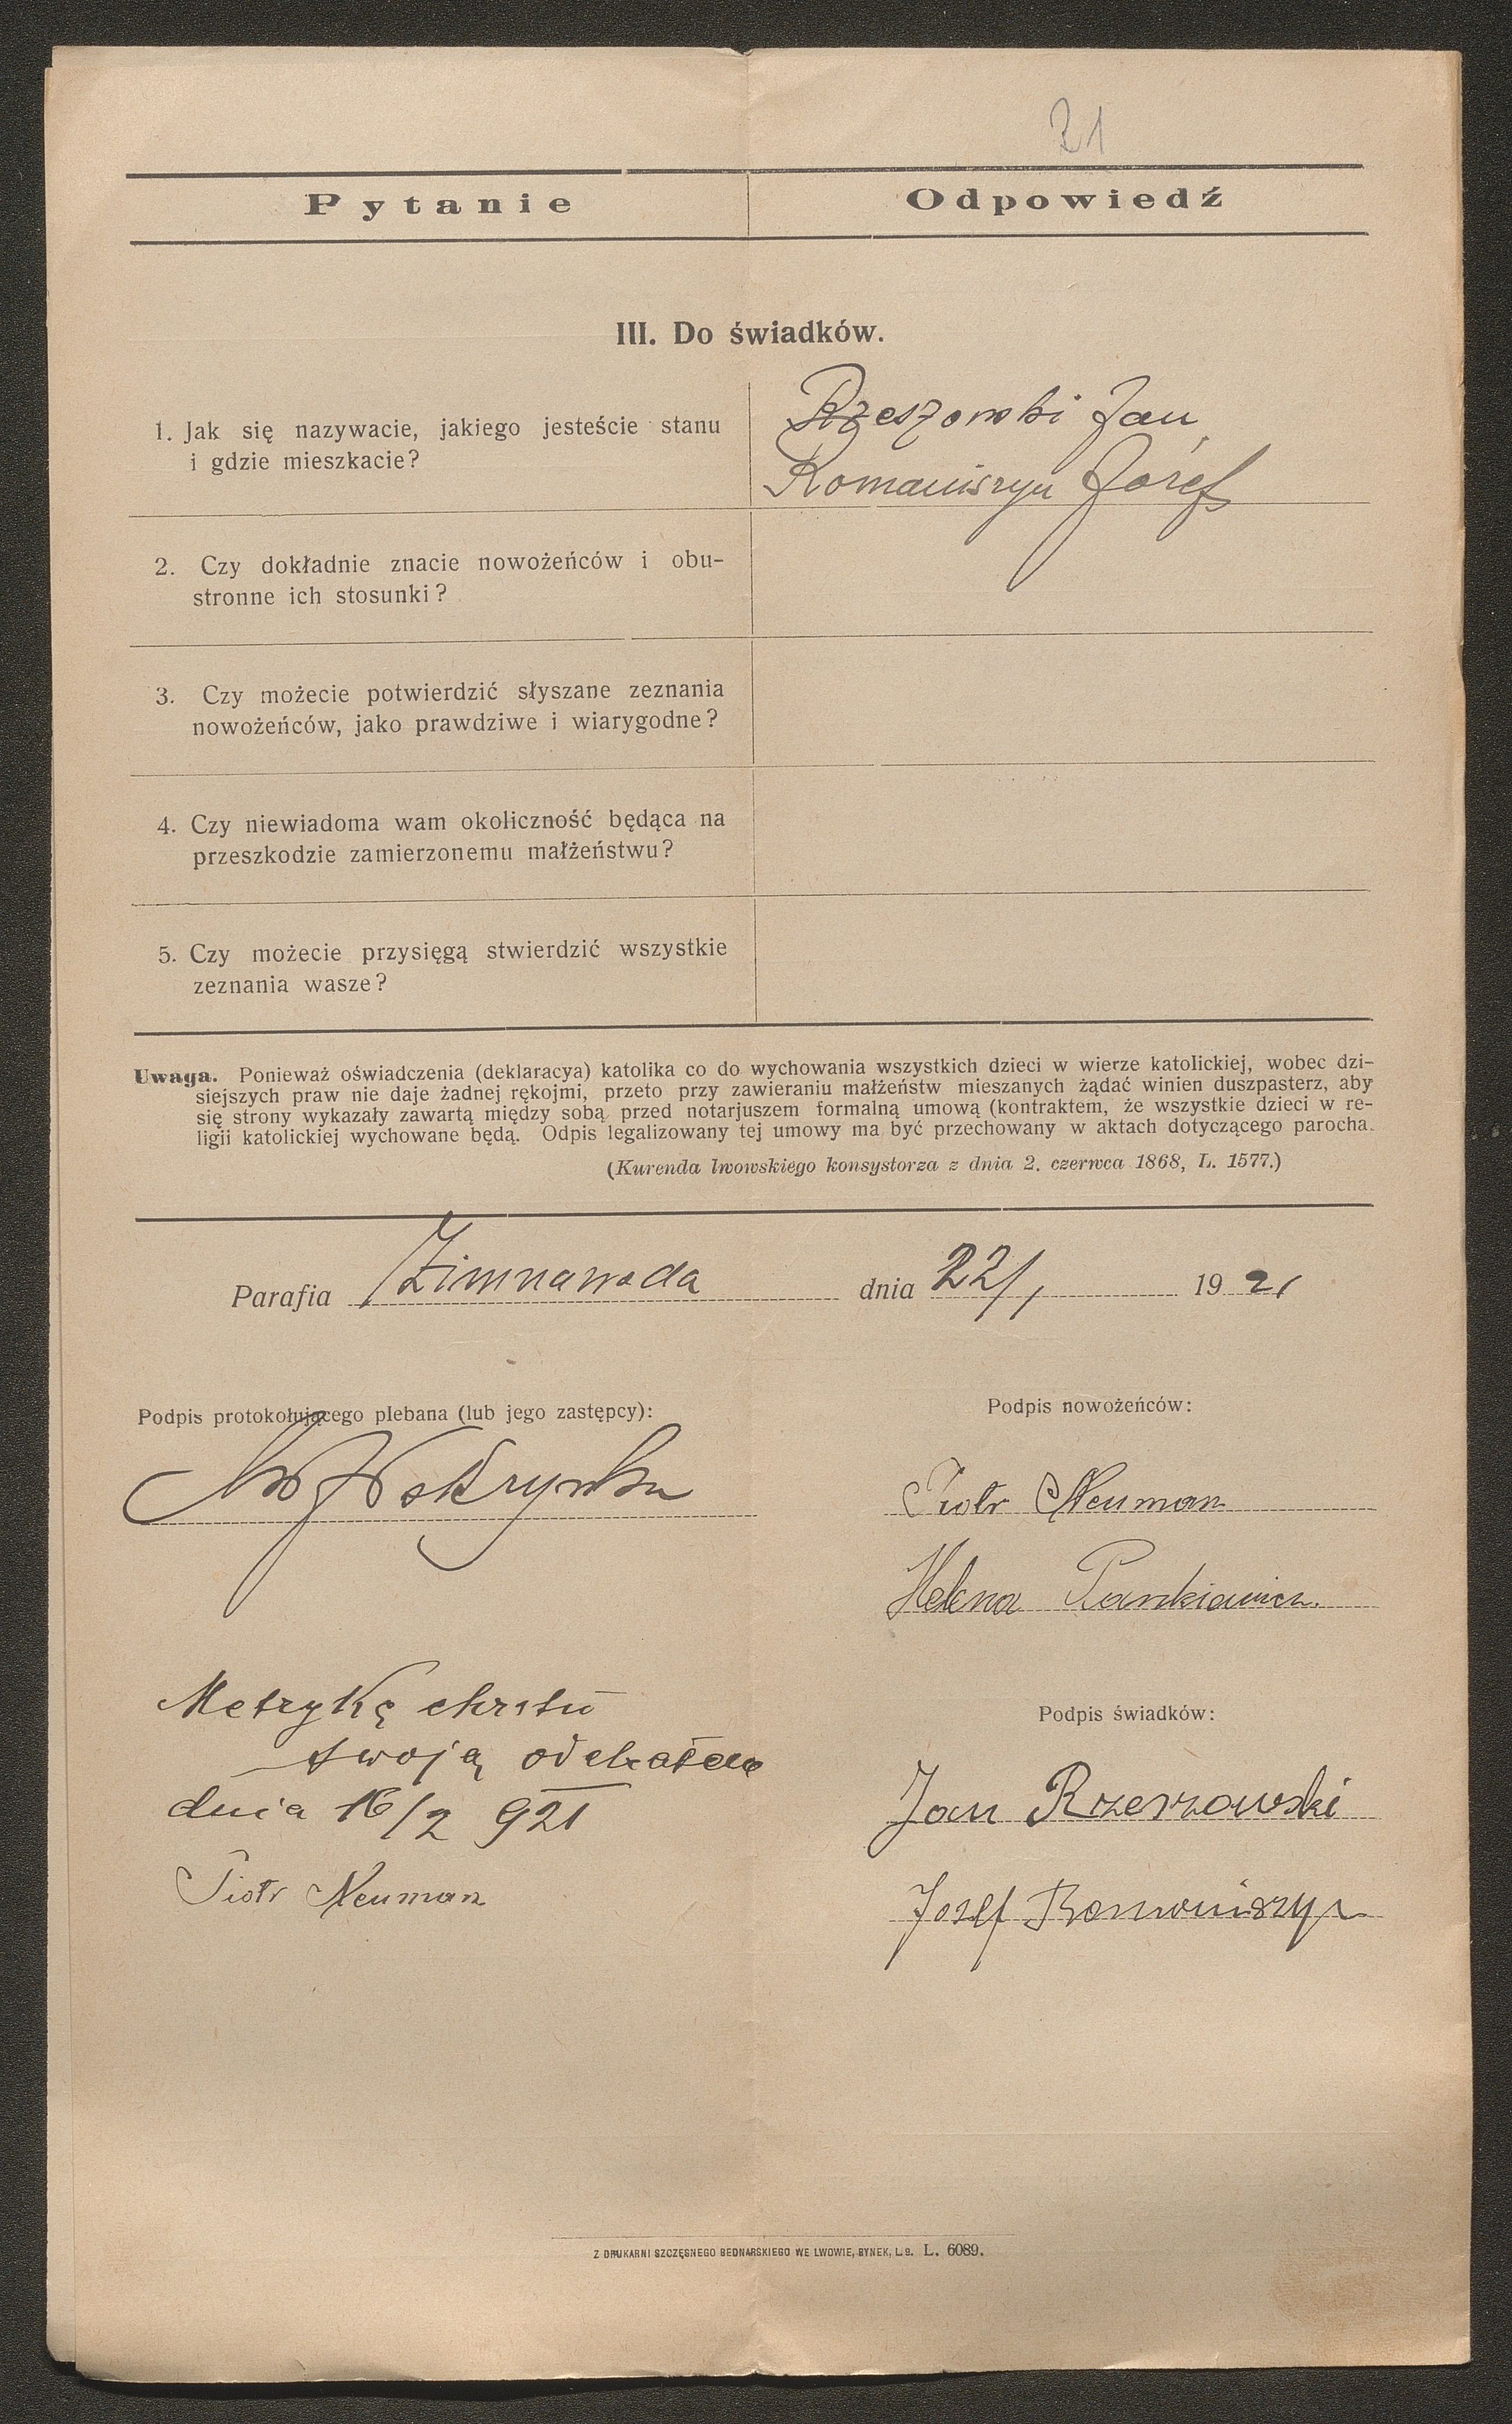 21
Pytanie
Odpowiedź
III. Do świadków.
1. Jak się nazywacie, jakiego jesteście stanu
i gdzie mieszkacie?
Rzeszowski Jan
Romaniszyn Józef
2. Czy dokładnie znacie nowożeńców i obu-
stronne ich stosunki?
3. Czy możecie potwierdzić słyszane zeznania
nowożeńców, jako prawdziwe i wiarygodne?
4. Czy niewiadoma wam okoliczność będąca na
przeszkodzie zamierzonemu małżeństwu?
5. Czy możecie przysięgą stwierdzić wszystkie
zeznania wasze?
Uwaga. Ponieważ oświadczenia (deklaracya) katolika co do wychowania wszystkich dzieci w wierze katolickiej, wobec dzi-
siejszych praw nie daje żadnej rękojmi, przeto przy zawieraniu małżeństw mieszanych żądać winien duszpasterz, aby
się strony wykazały zawartą między sobą przed notarjuszem formalną umową (kontraktem, że wszystkie dzieci w re-
ligii katolickiej wychowane będą. Odpis legalizowany tej umowy ma być przechowany w aktach dotyczącego parocha.
(Kurenda lwowskiego konsystorza z dnia 2. czerwca 1868, L. 1577.)
Parafia Zimnawoda dnia 22/1 1921
Podpis protokołującego plebana (lub jego zastępcy):
Podpis nowożeńców:
Piotr Neuman
Helena Pankiewicz.
Metrykę chrztu
swoją odebrałem
dnia 16/2 921
Piotr Neuman
Podpis świadków:
Jan Rzeszowski
Josef Romaniszyn
Z DRUKARNI SZCZĘSNEGO BEDNARSKIEGO WE LWOWIE, RYNEK, L. 9. L. 6089.